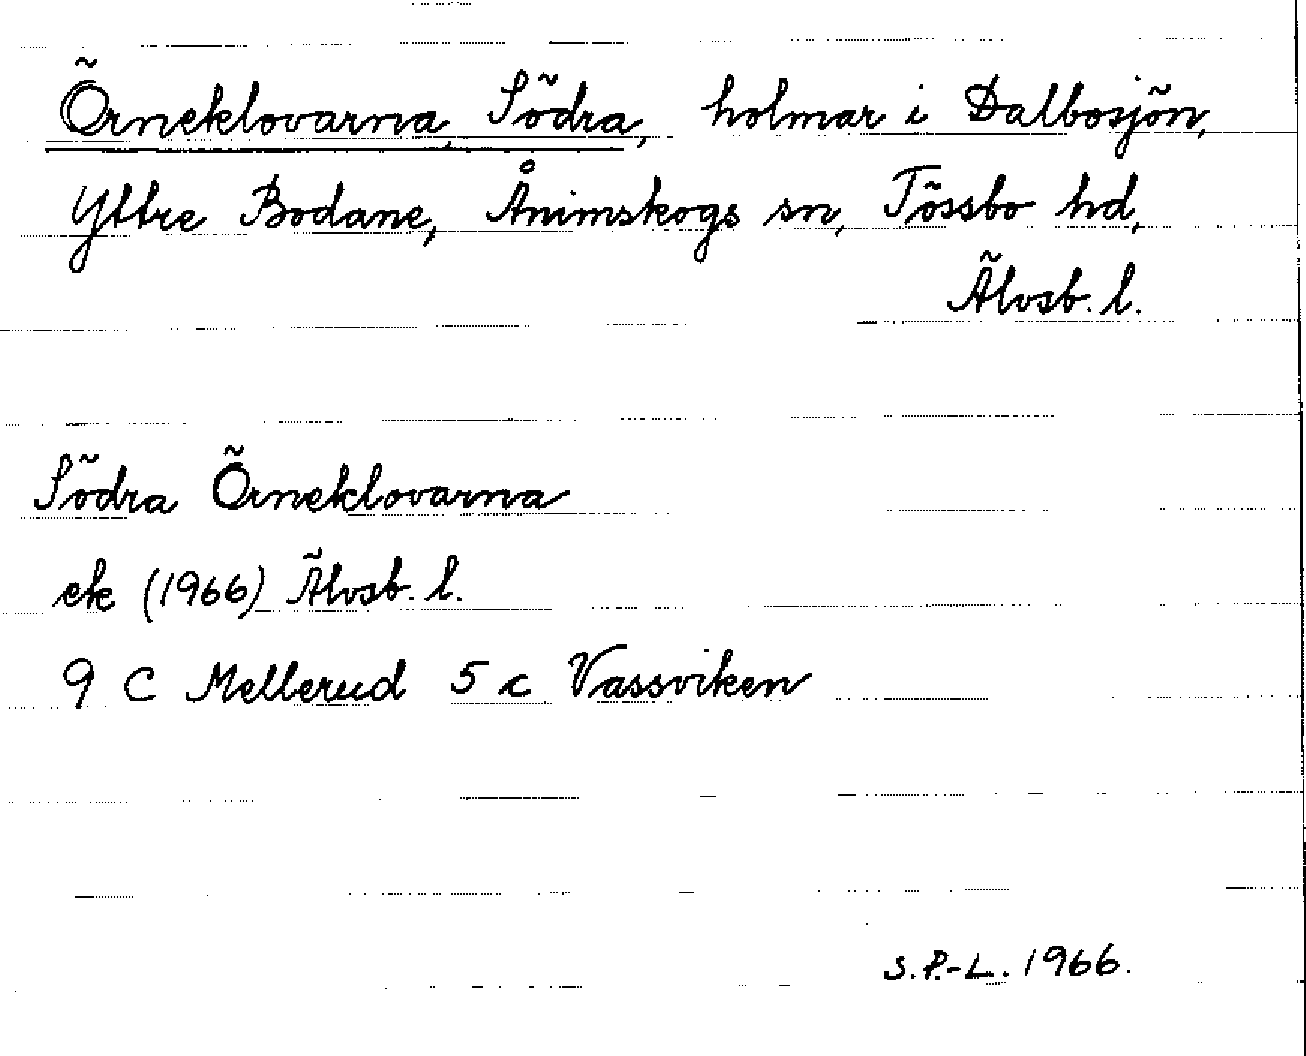 Örneklovarna, Södra, holmar i Dalbosjön,
Yttre Bodane, Ånimskogs sn, Tössbo hd,
Älvsb. l.
Södra Örneklovarna
ek (1966) Älvsb. l.
9 C Mellerud 5 c Vassviken
S. P.-L. 1966.